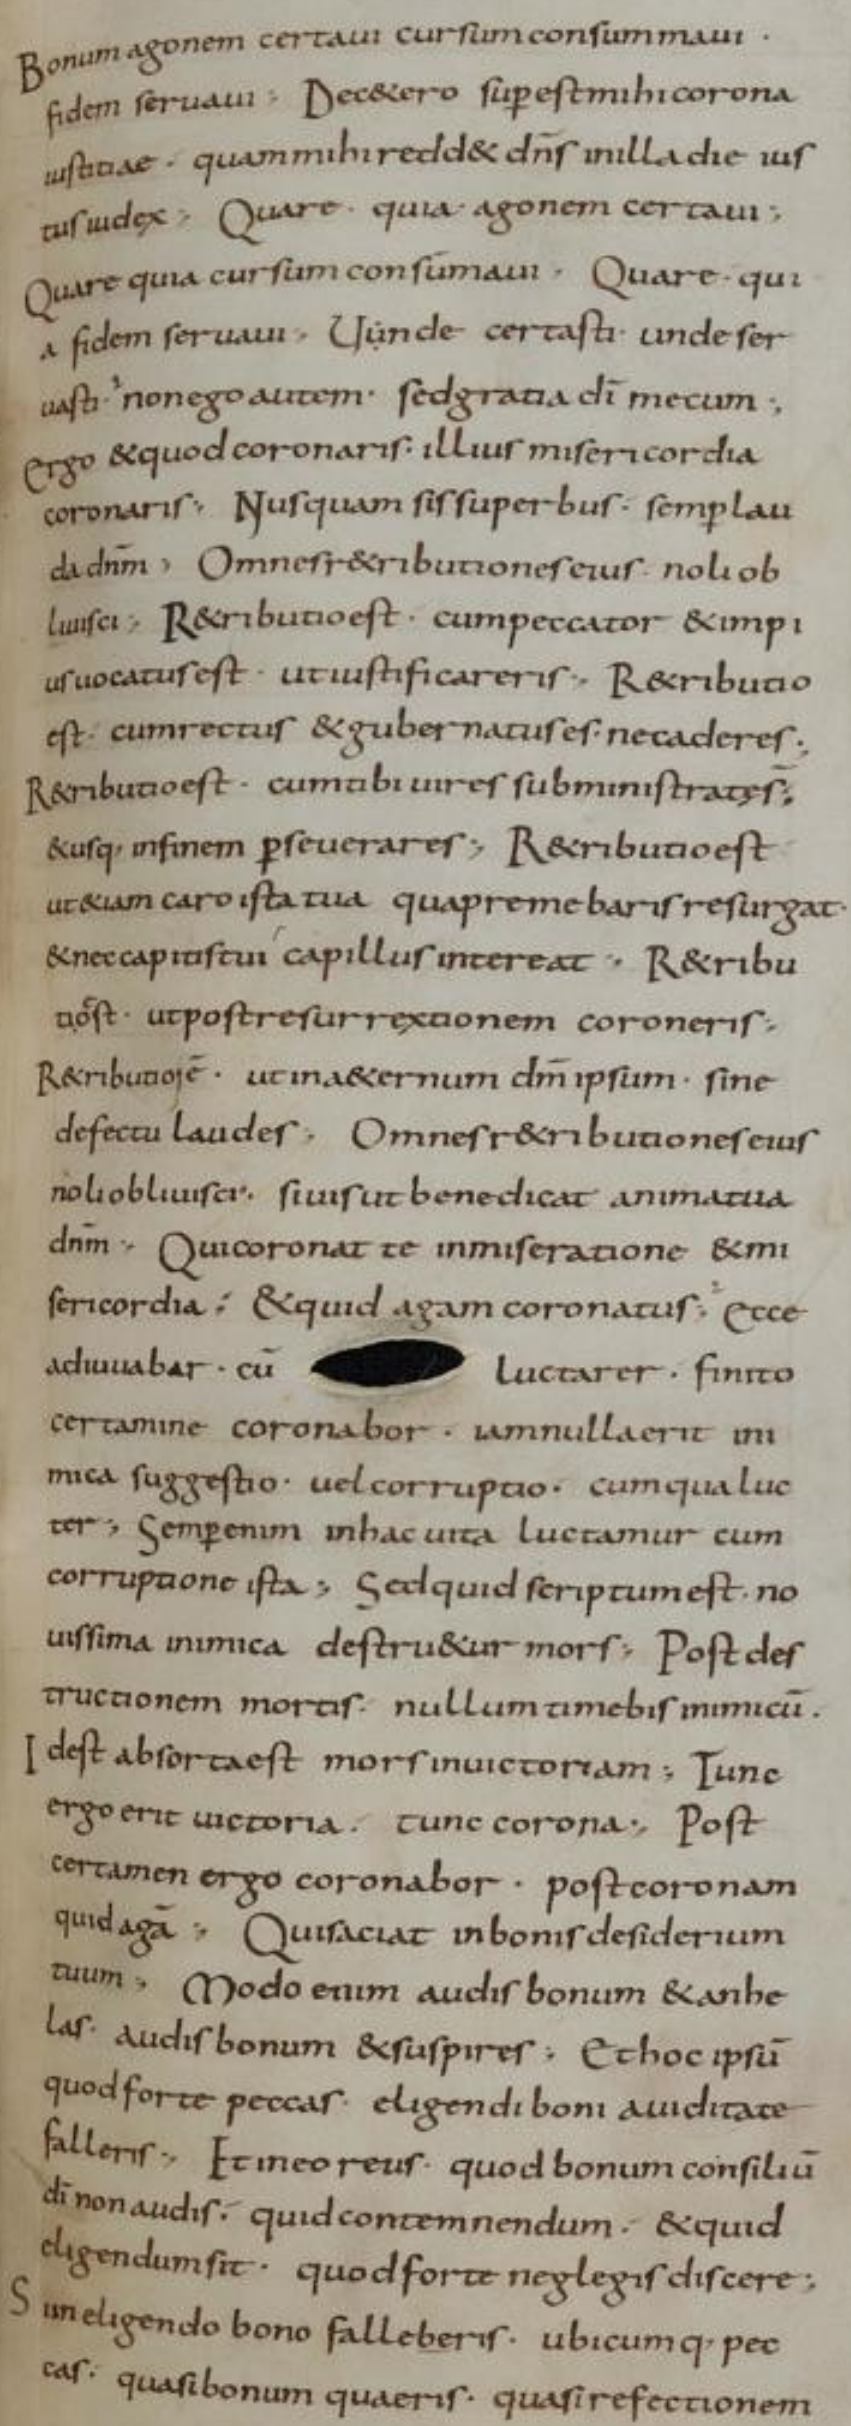 Bonum agonem certaui cursum consummaui ·
fidem seruaui ; De c&ero supest mihi corona
iustitiae · quam mihi redd& dn̄s in illa die ius
tus iudex ; Quare · quia · agonem certaui ;
Quare quia cursum consūmaui · Quare · qui
a fidem seruaui ; Uunde certasti · unde ser
uasti · non ego autem · sed gratia dī mecum ;
ergo & quod coronaris · illius misericordia
coronaris ; Nusquam sis superbus · semp lau
da dnm̄ ; Omnes r&ributiones eius · noli ob
liuisci ; R&ributio est · cum peccator & impi
us uocatus est · ut iustificareris ; R&ributio
est · cum rectus & gubernatus es · ne caderes ;
R&ributio est · cum tibi uires subministratęs ;
& usq· in finem pseuerares ; R&ributio est
ut &iam caro ista tua qua premebaris resurgat ·
& nec capitis tui capillus intereat ; R&ribu
tio ̄st · ut post resurrextionem coroneris ;
R&ributio ē · ut in a&ernum dm̄ ipsum · sine
defectu laudes ; Omnes r&ributiones eius
noli obliuisci · si uis ut benedicat anima tua
dnm̄ ; Qui coronat te in miseratione & mi
sericordia ; & quid agam coronatus ; ecce
adiuuabar · cū luctarer · finito
certamine coronabor · iam nulla erit ini
mica suggestio · uel corruptio · cum qua luc
ter ; Semp enim in hac uita luctamur cum
corruptione ista ; Sed quid scriptum est · no
uissima inimica destru&ur mors ; Post des
tructionem mortis · nullum timebis inimicū ·
Idest absorta est mors in uictoriam ; Tunc
ergo erit uictoria · tunc corona ; Post
certamen ergo coronabor · post coronam
quid agā ; Qui saciat in bonis desiderium
tuum ; Modo enim audis bonum & anhe
las · audis bonum & suspires ; Et hoc ipsū
quod forte peccas · eligendi boni auiditate
falleris ; Et in eo reus · quod bonum consiliū
dī non audis · quid contemnendum · & quid
eligendum sit · quod forte neglegis discere ;
S in eligendo bono falleberis · ubicumq· pec
cas · quasi bonum quaeris · quasi refectionem